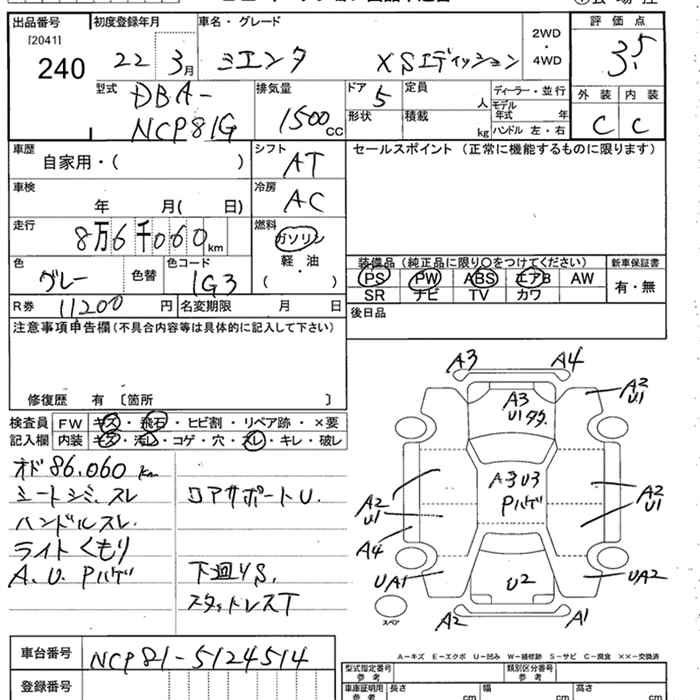 出品番号 初度登録年月 車名・グレード 評価点
[2041] 240 22 3月 ミエンタ XSエディッション 2WD・4WD 3.5
型式 DBA-NCP81G 排気量 1500cc ドア 5 定員 人 ディーラー・並行 外装 内装
形状 積載 kg モデル年式 年 ハンドル 左・右 C C
車歴 自家用・( ) シフト AT セールスポイント (正常に機能するものに限ります)
車検 年 月( 日) 冷房 AC
走行 8万6千060km 燃料 ガソリン 軽・油 ( )
色 グレー 色替 色コード 1G3 装備品 (純正品に限り○をつけてください) 新車保証書
PS PW ABS エアB AW 有・無
SR ナビ TV カワ
R券 11200円 名変期限 月 日 後日品
注意事項申告欄 (不具合内容等は具体的に記入して下さい)
修復歴 有 〔箇所 〕
検査員記入欄 FW キズ・飛石・ヒビ割・リペア跡・×要
内装 キズ・汚レ・コゲ・穴・スレ・キレ・破レ
オド 86,060 km
シートシミ、スレ コアサポートU.
ハンドルスレ.
ライトくもり
A.U.Pハゲ 下廻りS.
スタッドレスT
A3 A4
A3 U1
A2 U1
A3U3 Pハゲ
A2 U1
A2 U1
A4
UA1 U2 UA2
スペア A2 A1
A-キズ E-エクボ U-凹み W-補修跡 S-サビ C-腐食 ××-交換済
車台番号 NCP81-5124514 型式指定番号 参考 類別区分番号 参考
登録番号 車庫証明用 参考 長さ cm 幅 cm 高さ cm